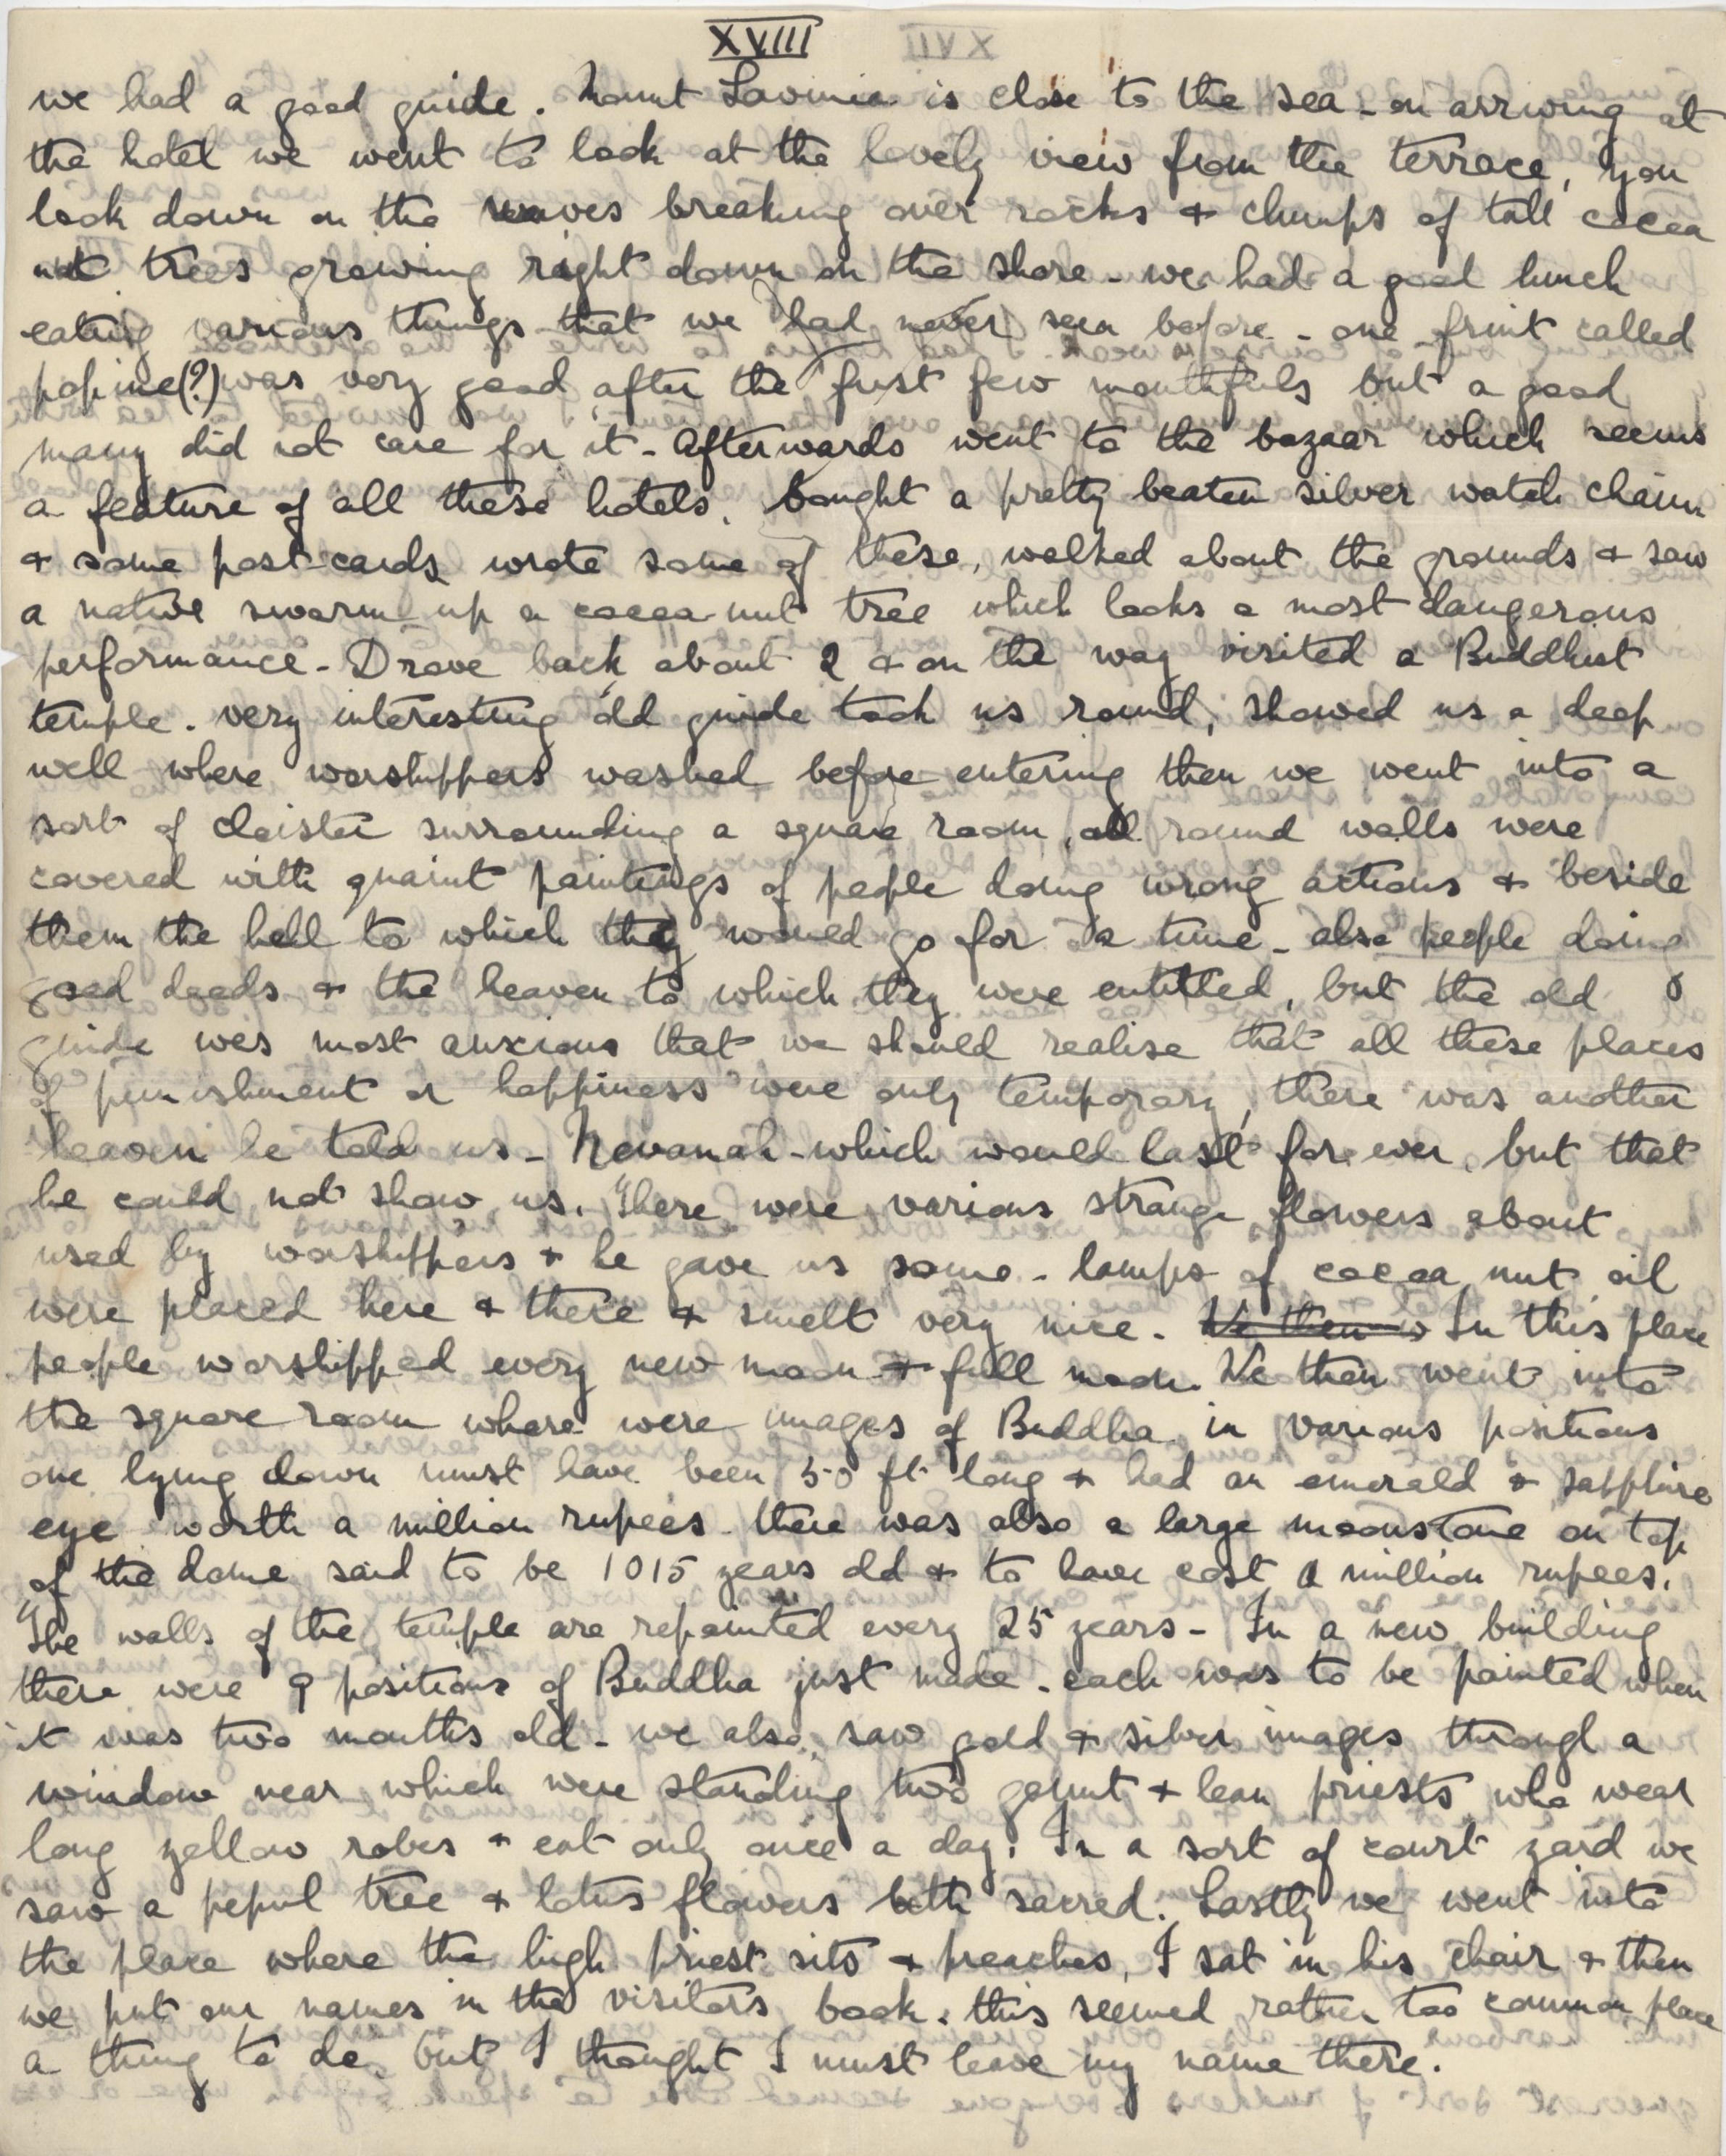 XVIII
we had a good guide. Mount Lavinia is close to the sea - on arriving at
the hotel we went to look at the lovely view from the terrace, you
look down on the waves breaking over rocks & clumps of tall cocoa
nut trees growing right down on the shore - we had a good lunch
eating various things that we had never seen before - one fruit called
popine(?) was very good after the first few mouthfuls but a good
many did not care for it - Afterwards went to the bazaar which seems
a feature of all these hotels, bought a pretty beaten silver watch chain
& some post-cards wrote some of these, walked about the grounds & saw
a native swarm up a cocoa-nut tree which looks a most dangerous
performance - Drove back about 2 & on the way visited a Buddhist
temple. very interesting old guide took us round, showed us a deep
well where worshippers washed before entering then we went into a
sort of cloister surrounding a square room, all round walls were
covered with quaint paintings of people doing wrong actions & beside
them the hell to which they would go for a time - also people doing
good deeds & the heaven to which they were entitled, but the old
guide was most anxious that we should realise that all these places
of punishment or happiness were only temporary, there was another
heaven he told us - Nevanah - which would last for ever, but that
he could not show us. There were various strange flowers about
used by worshippers & he gave us some - lamps of cocoa nut oil
were placed here & there & smelt very nice. We then w In this place
people worshipped every new moon & full moon. We then went into
the square room where were images of Buddha in various positions
one lying down must have been 50 ft long & had an emerald & sapphire
eye worth a million rupees - there was also a large moonstone on top
of the dome said to be 1015 years old & to have cost a million rupees.
The walls of the temple are repainted every 25 years - In a new building
there were 9 positions of Buddha just made - each was to be painted when
it was two months old - we also saw gold & silver images through a
window near which were standing two gaunt & lean priests who wear
long yellow robes & eat only once a day. In a sort of court yard we
saw a pepul tree & lotus flowers both sacred. Lastly we went into
the place where the high priest sits & preaches, I sat in his chair & then
we put our names in the visitors book. this seemed rather too common place
a thing to do but I thought I must leave my name there.